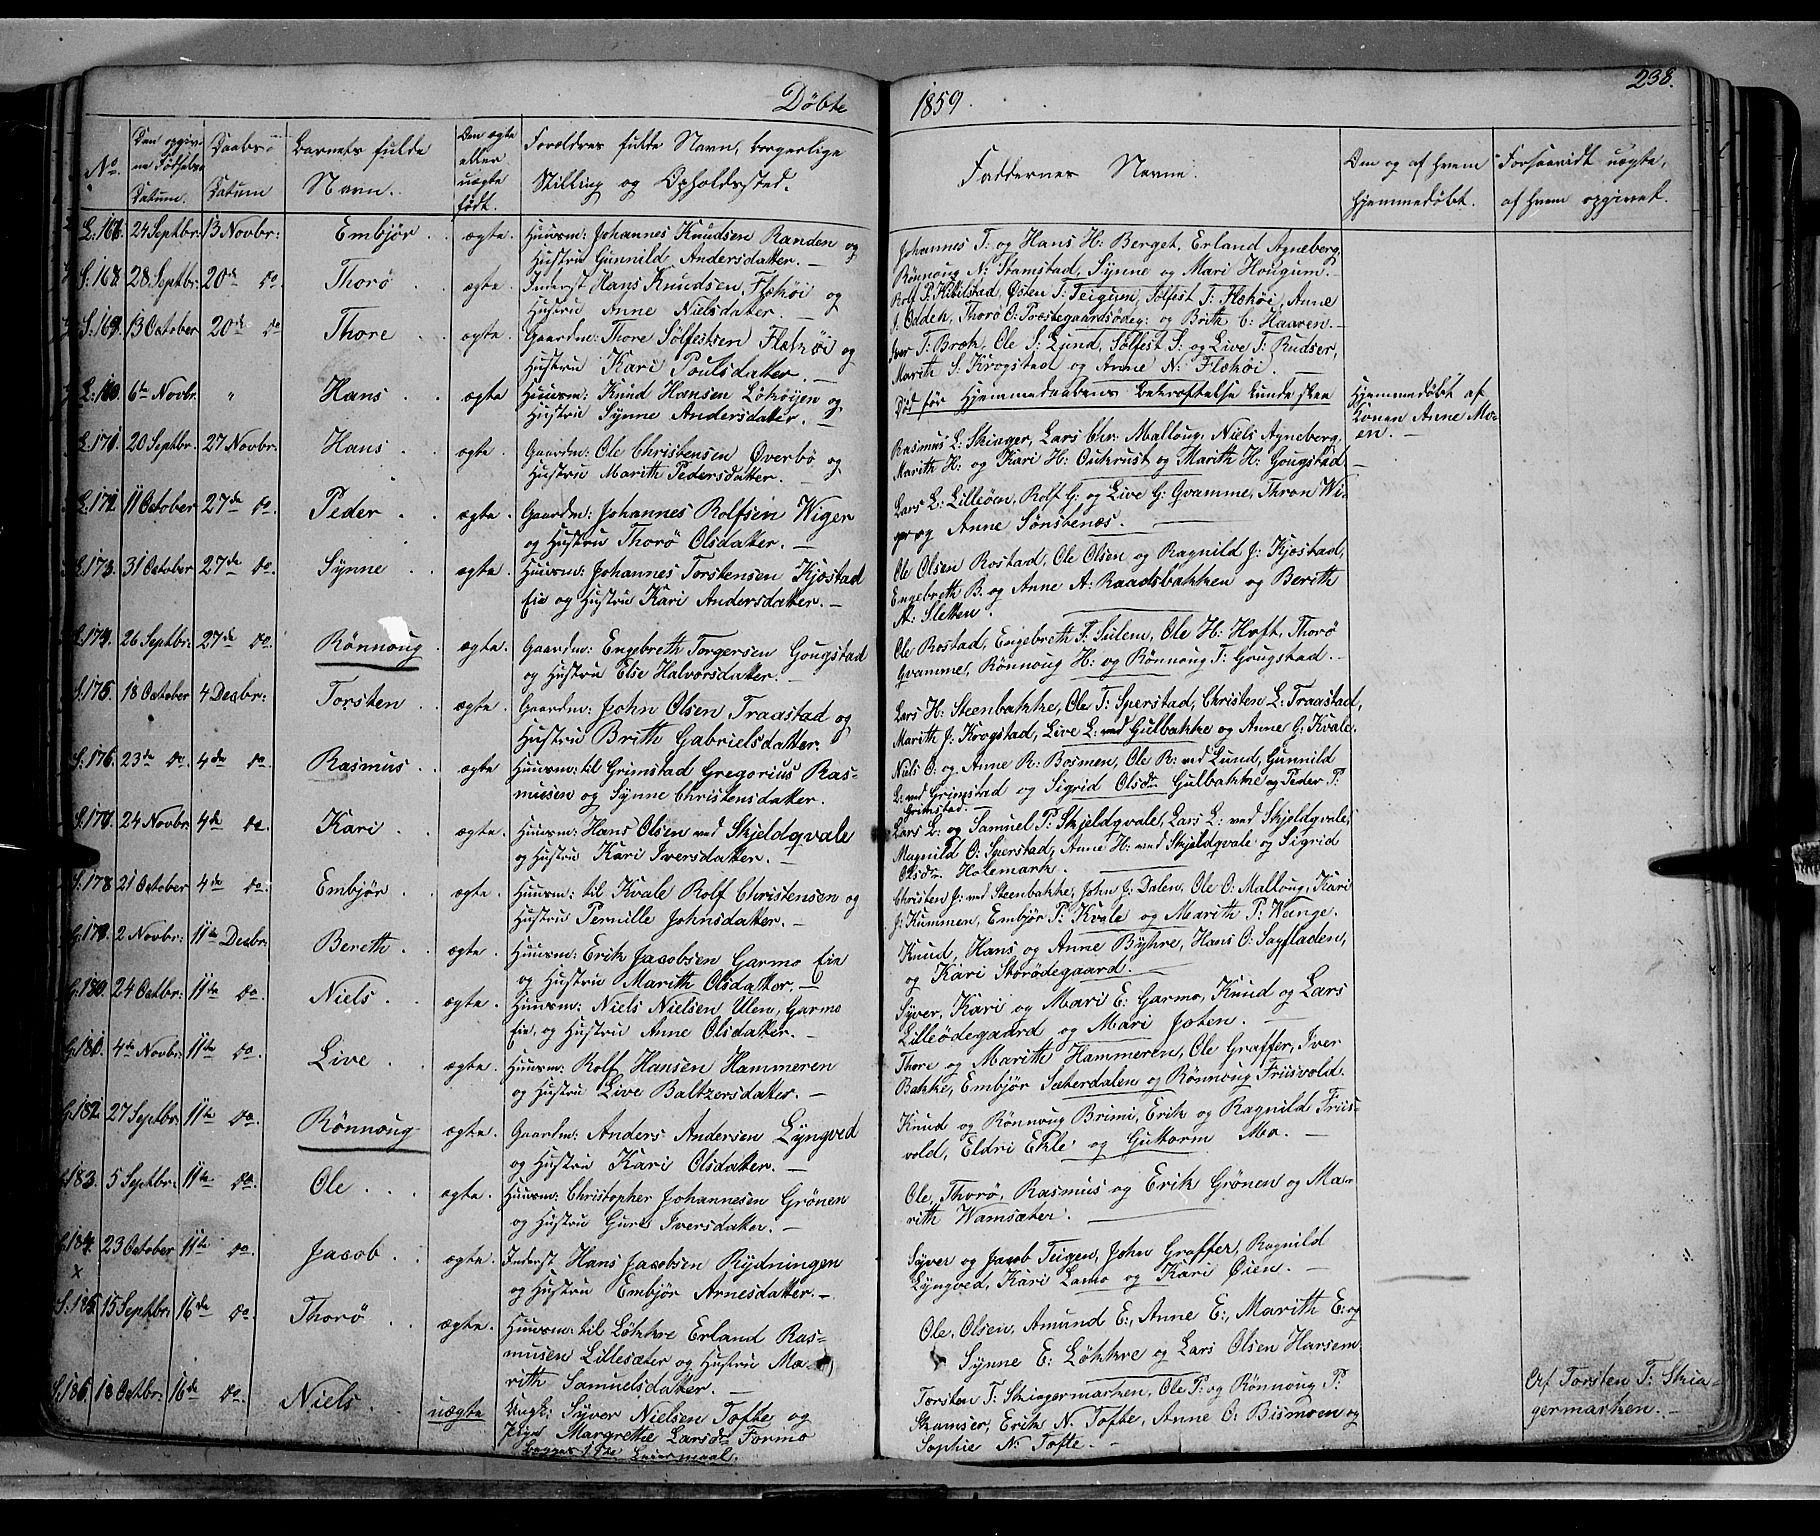 Döbte 1859. 238.
No. Den opgivne Födsels Datum. Daabs Datum Barnets fulde Navn. Om ægte eller uægte födt. Foreldres fulde Navn, borgerlige Stilling og Opholdssted. Faddernes Navne. Om og af Hvem Hjemmedöbt. Forsaavidt uægte, af Hvem opgivet.
L: 167. 24 Septbr: 13 Novbr: Embjör. ægte. Huusm: Johannes Knudsen Randen og
Hustru Gunnild Andersdatter. —
Johannes T: og Hans H: Berget, Erland Agneberg,
Rönnoug N: Stamstad, Synne og Mari Hougum. —
S: 168. 28 Septbr: 20de do. Thorö ægte. Inderst Hans Knudsen Flæköi og
Hustru Anne Nielsdatter. —
Rolf P: Kibilstad, Østen T: Teigum, Sölfest T: Flæhöi, Anne
J. Odden, Thorö O: Præstegaardsödeg: og Brith C: Haaven. —
S: 169. 13 October 20de do Thore ægte. Gaardm: Thore Sölfestsen Flæhöi og
Hustru Kari Poulsdatter. —
Iver T: Bræk, Ole S: Lund, Sölfest S: og Live T: Rudser,
Marith S. Krogstad og Anne N: Flæhöi. —
L: 170. 6te Novbr. " Hans ægte Huusm: Knud Hansen Lököijen og
Hustru Synne Andersdatter. —
Död för Hjemmedaabens Bekræftelse kunde skee
Hjemmedöbt af
Konen Anne Mo-
en. —
L: 171. 20 Septbr: 27 Novbr: Hans ægte. Gaardm: Ole Christensen Øverbö og
Hustru Marith Pedersdatter. —
Rasmus L: Skiager, Lars Chr: Malloug, Niels Agneberg,
Marith H: og Kari H: Oukrust og Marith H: Gougstad
L: 172. 11 October 27de do. Peder. ægte. Gaardm: Johannes Rolfsen Wiger
og Hustru Thorö Olsdatter. —
Lars L: Lilleöen, Rolf G: og Live G: Gvamme, Thron Wi-
ger og Anne Sönstenæs. —
L: 173. 31 October 27de do. Synne ægte. Huusm: Johannes Torstensen Kjöstad
Eie og Hustru Kari Andersdatter. —
Ole Olsen Rostad, Ole Olsen og Ragnild J: Kjöstad,
Engebreth B. og Anne A: Raadsbakken og Berith
A: Sletten.
L: 174. 26 Septbr: 27de do. Rönnoug ægte. Gaardm: Engebreth Torgersen Gougstad
og Hustru Else Halvorsdatter. —
Ole Rostad, Engebreth T: Sulem, Ole H: Hoft, Thorö
Gvamme, Rönnoug H: og Rönnoug T: Gougstad. —
S: 175. 18 October 4 Decbr: Torsten ægte. Gaardm: John Olsen Traastad og
Hustru Brith Gabrielsdatter.
Lars H: Steenbakke, Ole T: Sperstad, Christen L: Traastad,
Marith J: Krogstad, Live L: ved Gulbakke og Anne G: Kvale.
S: 176. 23de do. 4de do. Rasmus ægte Huusm: til Grimstad Gregorius Ras-
musen og Synne Christensdatter.
Niels O: og Anne R: Bosmen, Ole R: ved Lund, Gunnild
L: ved Grimstad og Sigrid Olsdr Gulbakke og Peder P:
Grimstad. —
S: 177. 24 Novbr: 4de do. Kari. ægte. Huusm: Hans Olsen ved Skjeldqvale
og Hustru Kari Iversdatter. —
Lars L: og Samuel P: Skjeldqvale, Lars L: ved Skjeldqvale,
Magnild O: Sperstad, Anne H: ved Skjeldqvale og Sigrid
Olsdr Holemark.
S: 178. 21 October 4de do. Embjör. ægte. Huusm: til Kvale Rolf Christensen og
Hustru Pernille Johnsdatter. —
Christen J: ved Steenbakke, John J: Dalen, Ole O: Malloug, Kari
J: Kummen, Embjör P: Kvale og Marith P: Wange.
G: 179. 2 Novbr: 11te Decbr: Bereth ægte. Huusm: Erik Jacobsen Garmo Eie
og Hustru Marith Olsdatter. —
Knud, Hans og Anne Byhre, Hans O: Sagfladen,
og Kari Storödegaard.
G: 180. 24 Octbr: 11te do. Niels. ægte. Huusm: Niels Nielsen Ulen, Garmo
Eie, og Hustru Anne Olsdatter. —
Syver, Kari og Mari E: Garmo, Knud og Lars
Lilleödegaard og Mari Joten. —
G: 181. 4de Novbr: 11te do. Live ægte. Huusm: Rolf Hansen Hammeren
og Hustru Live Baltzersdatter. —
Thore og Marith Hammeren, Ole Graffer, Iver
Bakke, Embjör Sæterdalen og Rönnoug Friisvold.
G: 182. 27 Septbr: 11te do. Rönnoug ægte. Gaardm: Anders Andersen Lyngved
og Hustru Kari Olsdatter. —
Knud og Rönnoug Brimi, Erik og Ragnild Friis-
vold, Eldri Ekle og Guttorm Mo. —
G: 183. 5 Septbr: 11te do. Ole ægte. Huusm: Christopher Johannesen Grönen
og Hustru Guro Iversdatter. —
Ole, Thorö, Rasmus og Erik Grönen og Ma-
rith Wamsæter.
G: 184. 23 October 11te do. Jacob. ægte. Inderst Hans Jacobsen Rydningen
og Hustru Embjör Arnesdatter. —
Syver og Jacob Teigen, John Graffer, Ragnild
Lyngved, Kari Lamo og Kari Øien. —
x
S: 185. 15 Septbr: 16de do. Thorö ægte. Huusm: til Lökkre Erland Ras-
musen Lillesæter og Hustru Ma-
rith Samuelsdatter. —
Ole, Olsen, Amund E:, Anne E:, Marith E: og
Synne E: Lökkre og Lars Olsen Harsem.
S: 186. 18 Octbr: 16de do. Niels uægte Ungk: Syver Nielsen Tofte og
Pige Margrethe Larsdr Formo
Begges 1ste Leiermaal.
Torsten T: Skiagermarken, Ole P: og Rönnoug P:
Skamser, Erik N. Tofte, Anne O: Bismoen og
Sophie N: Tofte. —
Af Torsten T: Skia-
germarken. —